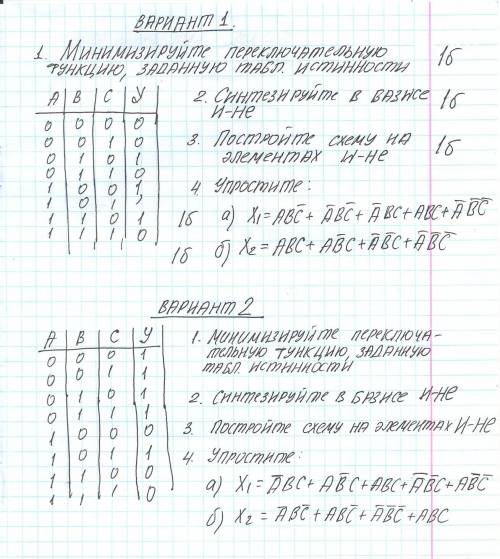 ВАРИАНТ 1.
1. Минимизируйте переключательную 1б
функцию, заданную табл. истинности
А В С У
0 0 0 0
0 0 1 0
0 1 0 1
0 1 1 0
1 0 0 1
1 0 1
1 1 0 1
1 1 1 0
2. Синтезируйте в базисе 1б
И-НЕ
3. Постройте схему на 1б
элементах И-НЕ
4. Упростите:
1б а) X₁ = ABC̅ + A̅BC̅ + A̅BC + ABC + A̅B̅C̅
1б б) X₂ = ABC + AB̅C + A̅B̅C + A̅B̅C̅
ВАРИАНТ 2
А В С У
0 0 0 1
0 0 1 1
0 1 0 1
0 1 1 1
1 0 0 0
1 0 1 1
1 1 0 0
1 1 1 0
1. Минимизируйте переключа-
тельную функцию, заданную
табл. истинности
2. Синтезируйте в базисе И-НЕ
3. Постройте схему на элементах И-НЕ
4. Упростите:
а) X₁ = A̅BC + AB̅C + ABC + A̅B̅C + AB̅C̅
б) X₂ = AB̅C̅ + ABC̅ + A̅B̅C̅ + ABC